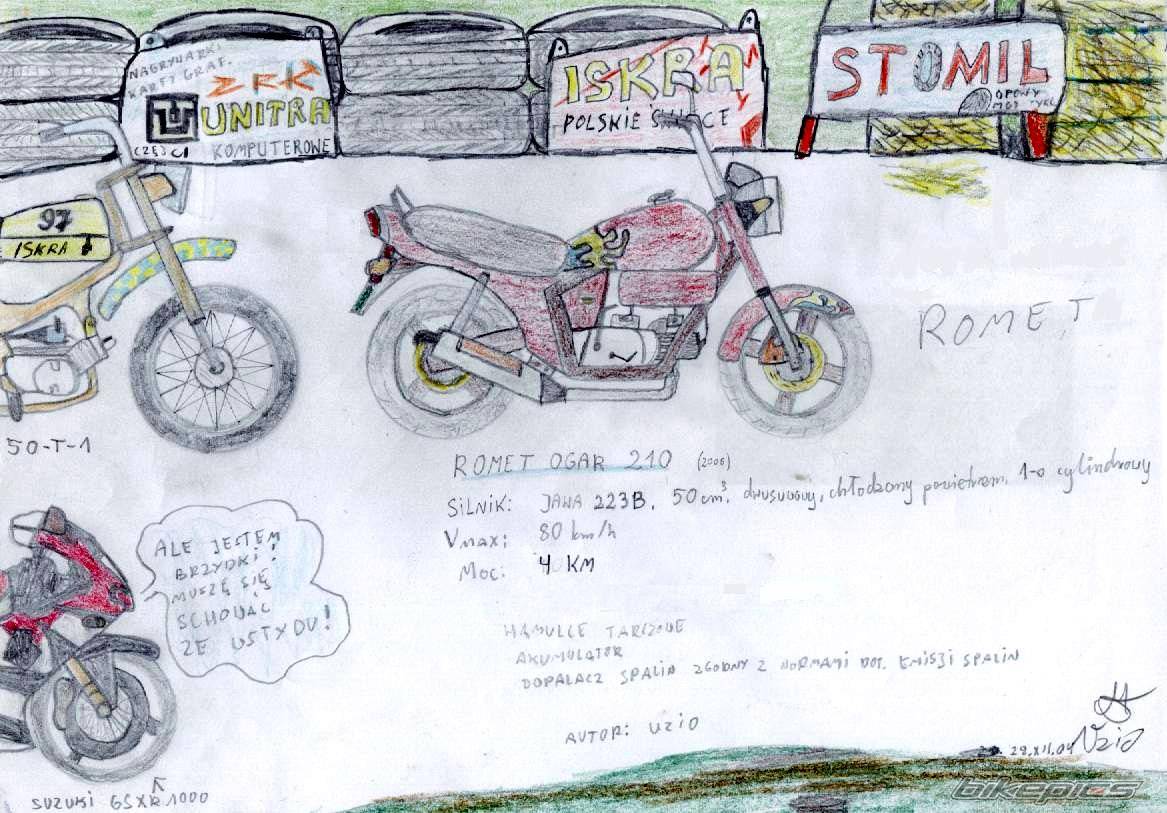 NAGRYWARKI
KARTY GRAF.
ZRK
UNITRA
CZĘŚCI KOMPUTEROWE
ISKRA
POLSKIE ŚWIECE
STOMIL
OPONY
MOTOCYKL
97
ISKRA
50-T-1
ROMET
ROMET OGAR 210 (2006)
SILNIK: JAWA 223B, 50 cm³, dwusuwowy, chłodzony powietrzem, 1-o cylindrowy
Vmax: 80 km/h
MOC: 4 KM
ALE JESTEM
BRZYDKI!
MUSZĘ SIĘ
SCHOWAĆ
ZE WSTYDU!
HAMULCE TARCZOWE
AKUMULATOR
DOPALACZ SPALIN ZGODNY Z NORMAMI DOT. EMISJI SPALIN
AUTOR: UZIO
28.XII.04 Uzio
SUZUKI GSXR 1000
bikepics